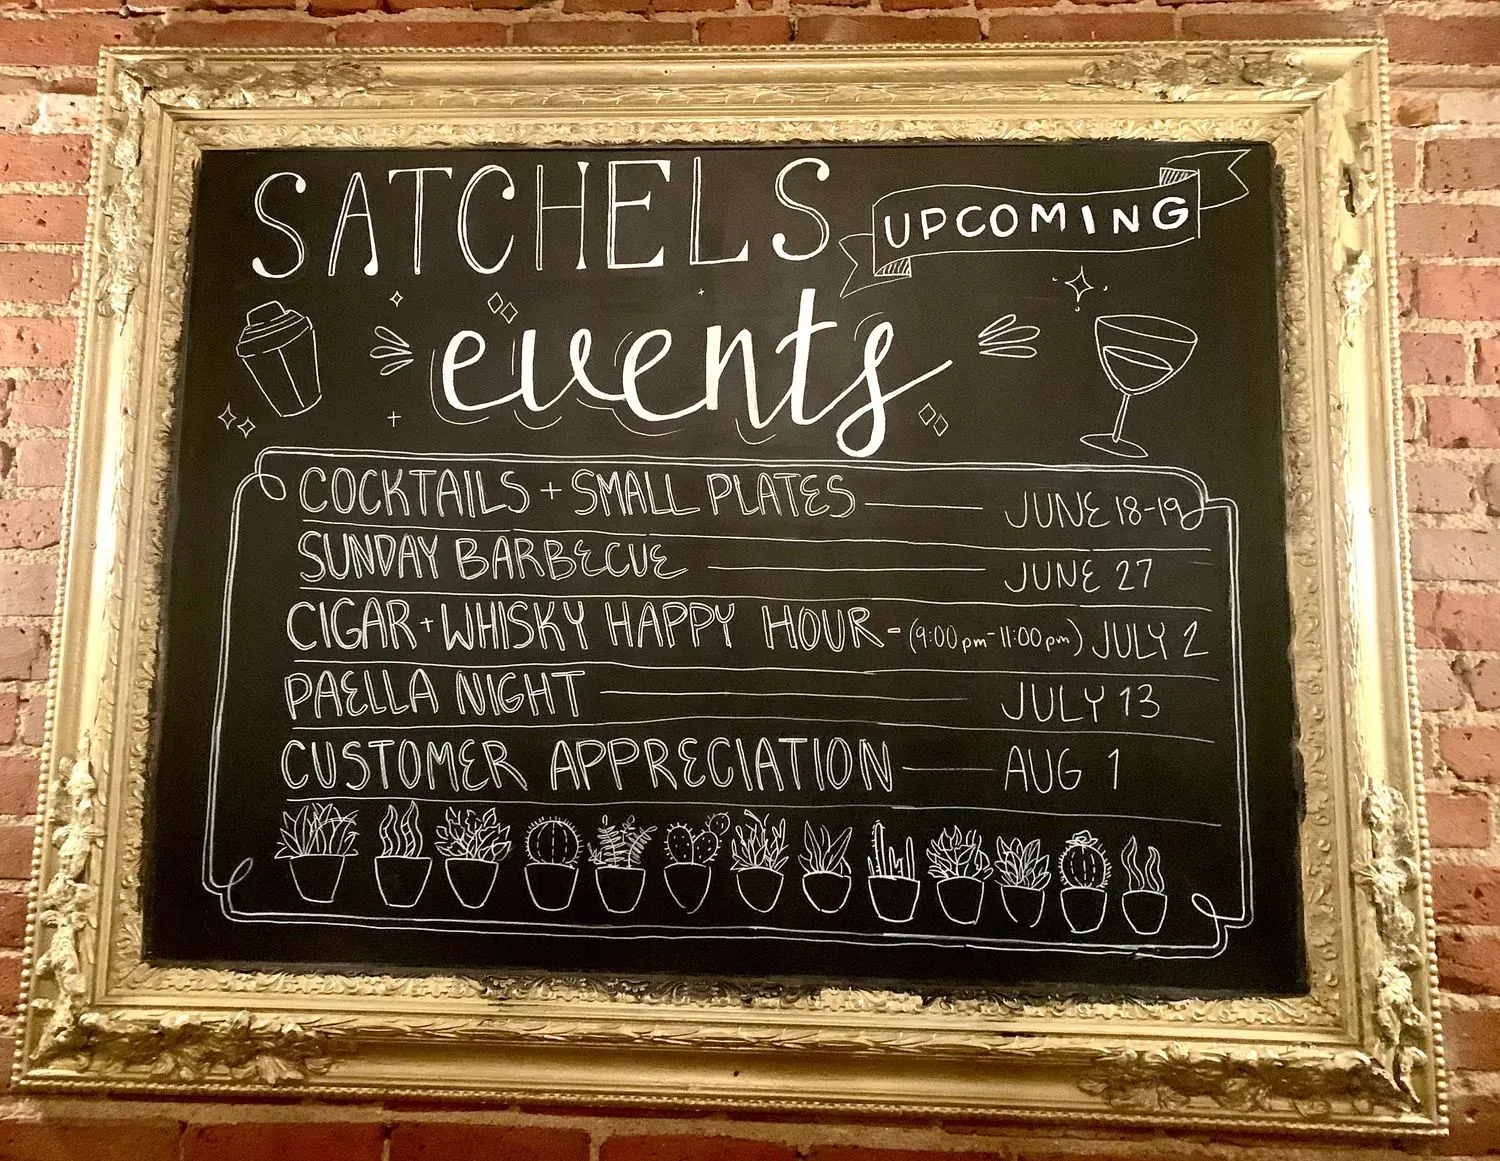 SATCHELS UPCOMING
events
COCKTAILS + SMALL PLATES JUNE 18-19
SUNDAY BARBECUE JUNE 27
CIGAR + WHISKY HAPPY HOUR - (9:00pm-11:00pm) JULY 2
PAELLA NIGHT JULY 13
CUSTOMER APPRECIATION AUG 1